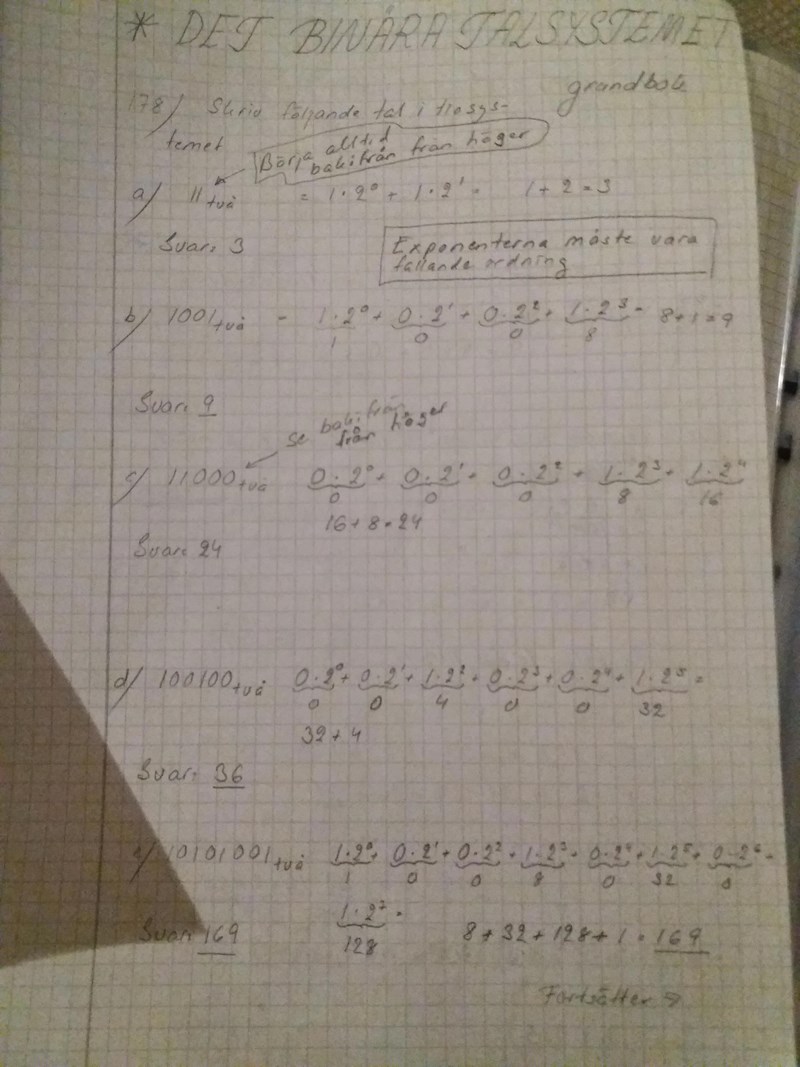 * DET BINÄRA TALSYSTEMET
grandbok
178) Skriv följande tal i tiosys-
temet
Börja alltid
bakifrån från höger
a) 11två = 1·2⁰ + 1·2¹ = 1+2=3
Svar: 3
Exponenterna måste vara
fallande ordning
b) 1001två = 1·2⁰ + 0·2¹ + 0·2² + 1·2³ = 8+1=9
1 0 0 8
Svar: 9
se bakifrån
från höger
c) 11000två 0·2⁰ + 0·2¹ + 0·2² + 1·2³ + 1·2⁴
0 0 0 8 16
16+8=24
Svar: 24
d) 100100två 0·2⁰ + 0·2¹ + 1·2² + 0·2³ + 0·2⁴ + 1·2⁵ =
0 0 4 0 0 32
32+4
Svar: 36
e) 10101001två 1·2⁰ + 0·2¹ + 0·2² + 1·2³ + 0·2⁴ + 1·2⁵ + 0·2⁶ +
1 0 0 8 0 32 0
1·2⁷ =
128
Svar: 169 8+32+128+1=169
Fortsätter →